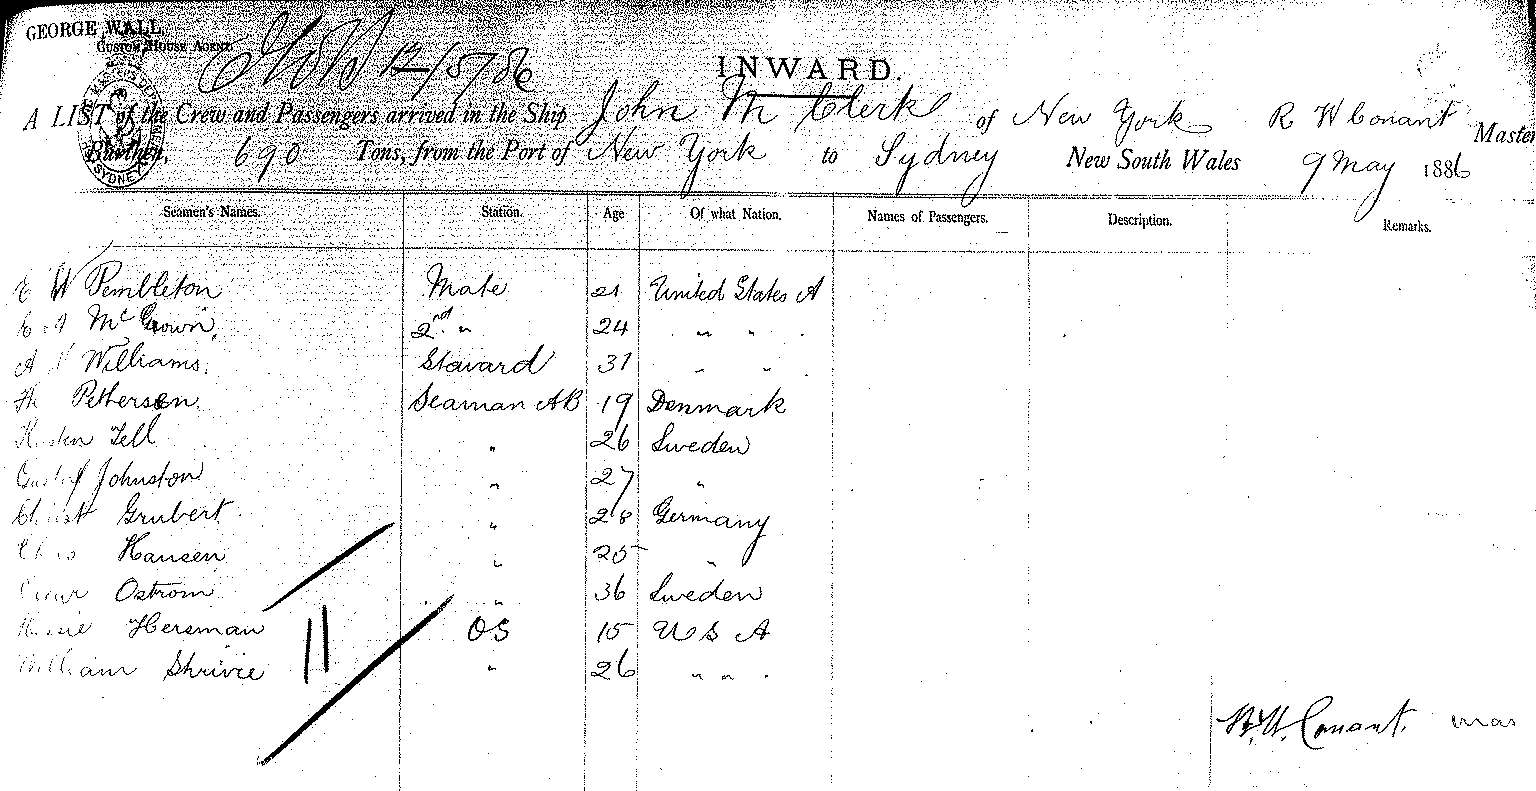 GEORGE WALL,
Custom House Agent.
12/5/86
INWARD.
A LIST of the Crew and Passengers arrived in the Ship John M Clerk of New York R W Conant Master
Burthen, 690 Tons, from the Port of New York to Sydney New South Wales 9 May 1886
SYDNEY
Seamen's Names. Station. Age Of what Nation. Names of Passengers. Description. Remarks.
E W Pembleton Mate 21 United States A
E A McGown 2nd " 24 " " .
A Williams Steward 31 " " .
Pethersen Seaman AB 19 Denmark
Tell " 26 Sweden
Gustaf Johnston " 27 "
Christ Grubert " 28 Germany
Hansen " 25 "
Ostrom " 36 Sweden
Hersman OS 15 U S A
William Shrivie " 26 " " .
R. W. Conant. mas